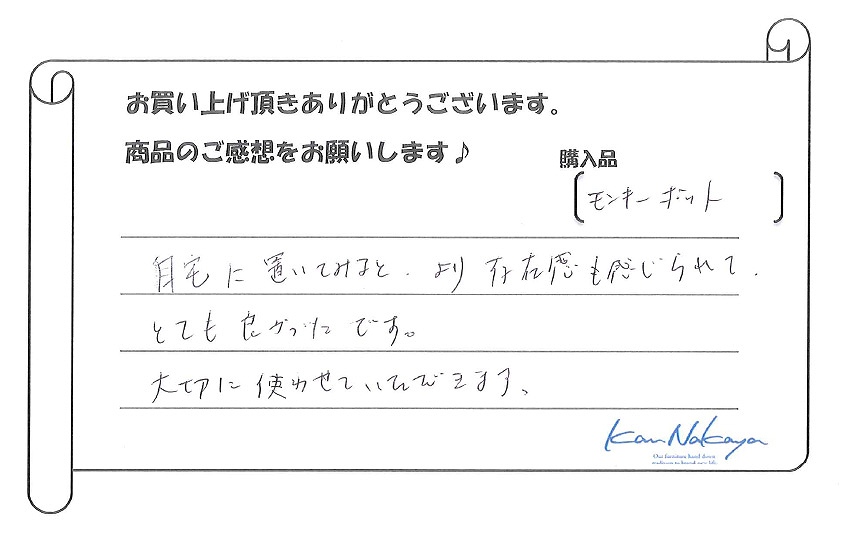 お買い上げ頂きありがとうございます。
商品のご感想をお願いします♪
購入品
モンキーポット
自宅に置いてみると、より存在感も感じられて、
とても良かったです。
大切に使わせていただきます。
Kan Nakaya
Our furniture hand down
traditions to brand new life.